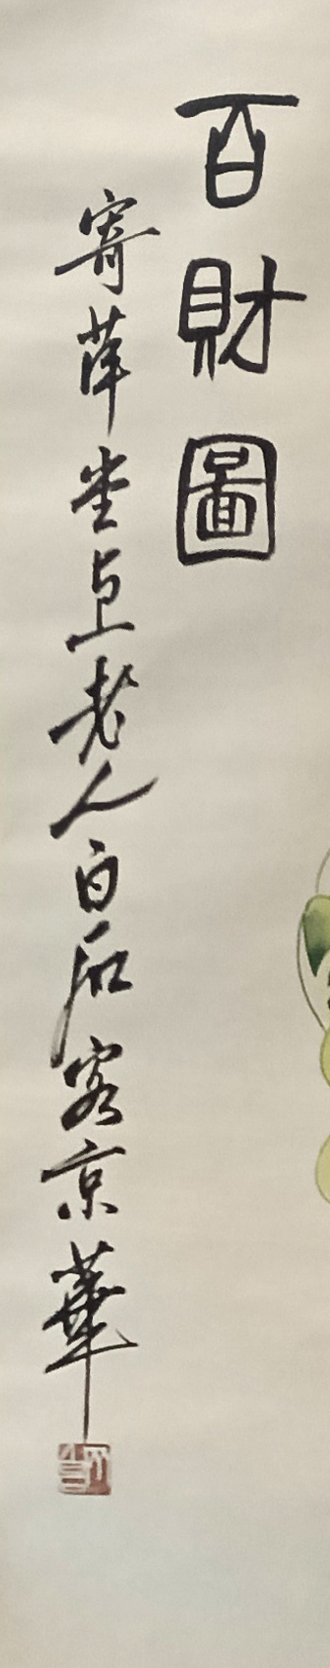 百財圖
寄萍堂上老人白石客京華